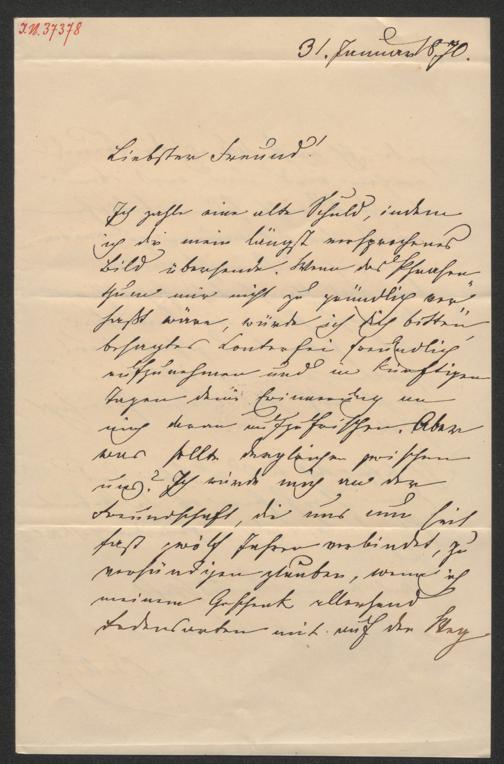 I.N. 37378
31. Januar 1870.
Liebster Freund!
Ich zahle eine alte Schuld, indem
ich dir mein längst versprochenes
Bild übersende. Wenn das Phrasen-
thum mir nicht zu gründlich ver-
haßt wäre, würde ich dich bitten,
besagtes Conterfei freundlich
aufzunehmen und in künftigen
Tagen deine Erinnerung an
mich daran aufzufrischen. Aber
was sollte dergleichen zwischen
uns? Ich würde mich an der
Freundschaft, die uns nun seit
fast zwölf Jahren verbindet, zu
versündigen glauben, wenn ich
meinem Geschenk allerhand
Redensarten mit auf den Weg